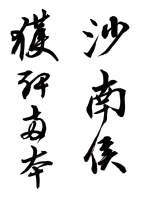 沙南侯
獲碑兩本